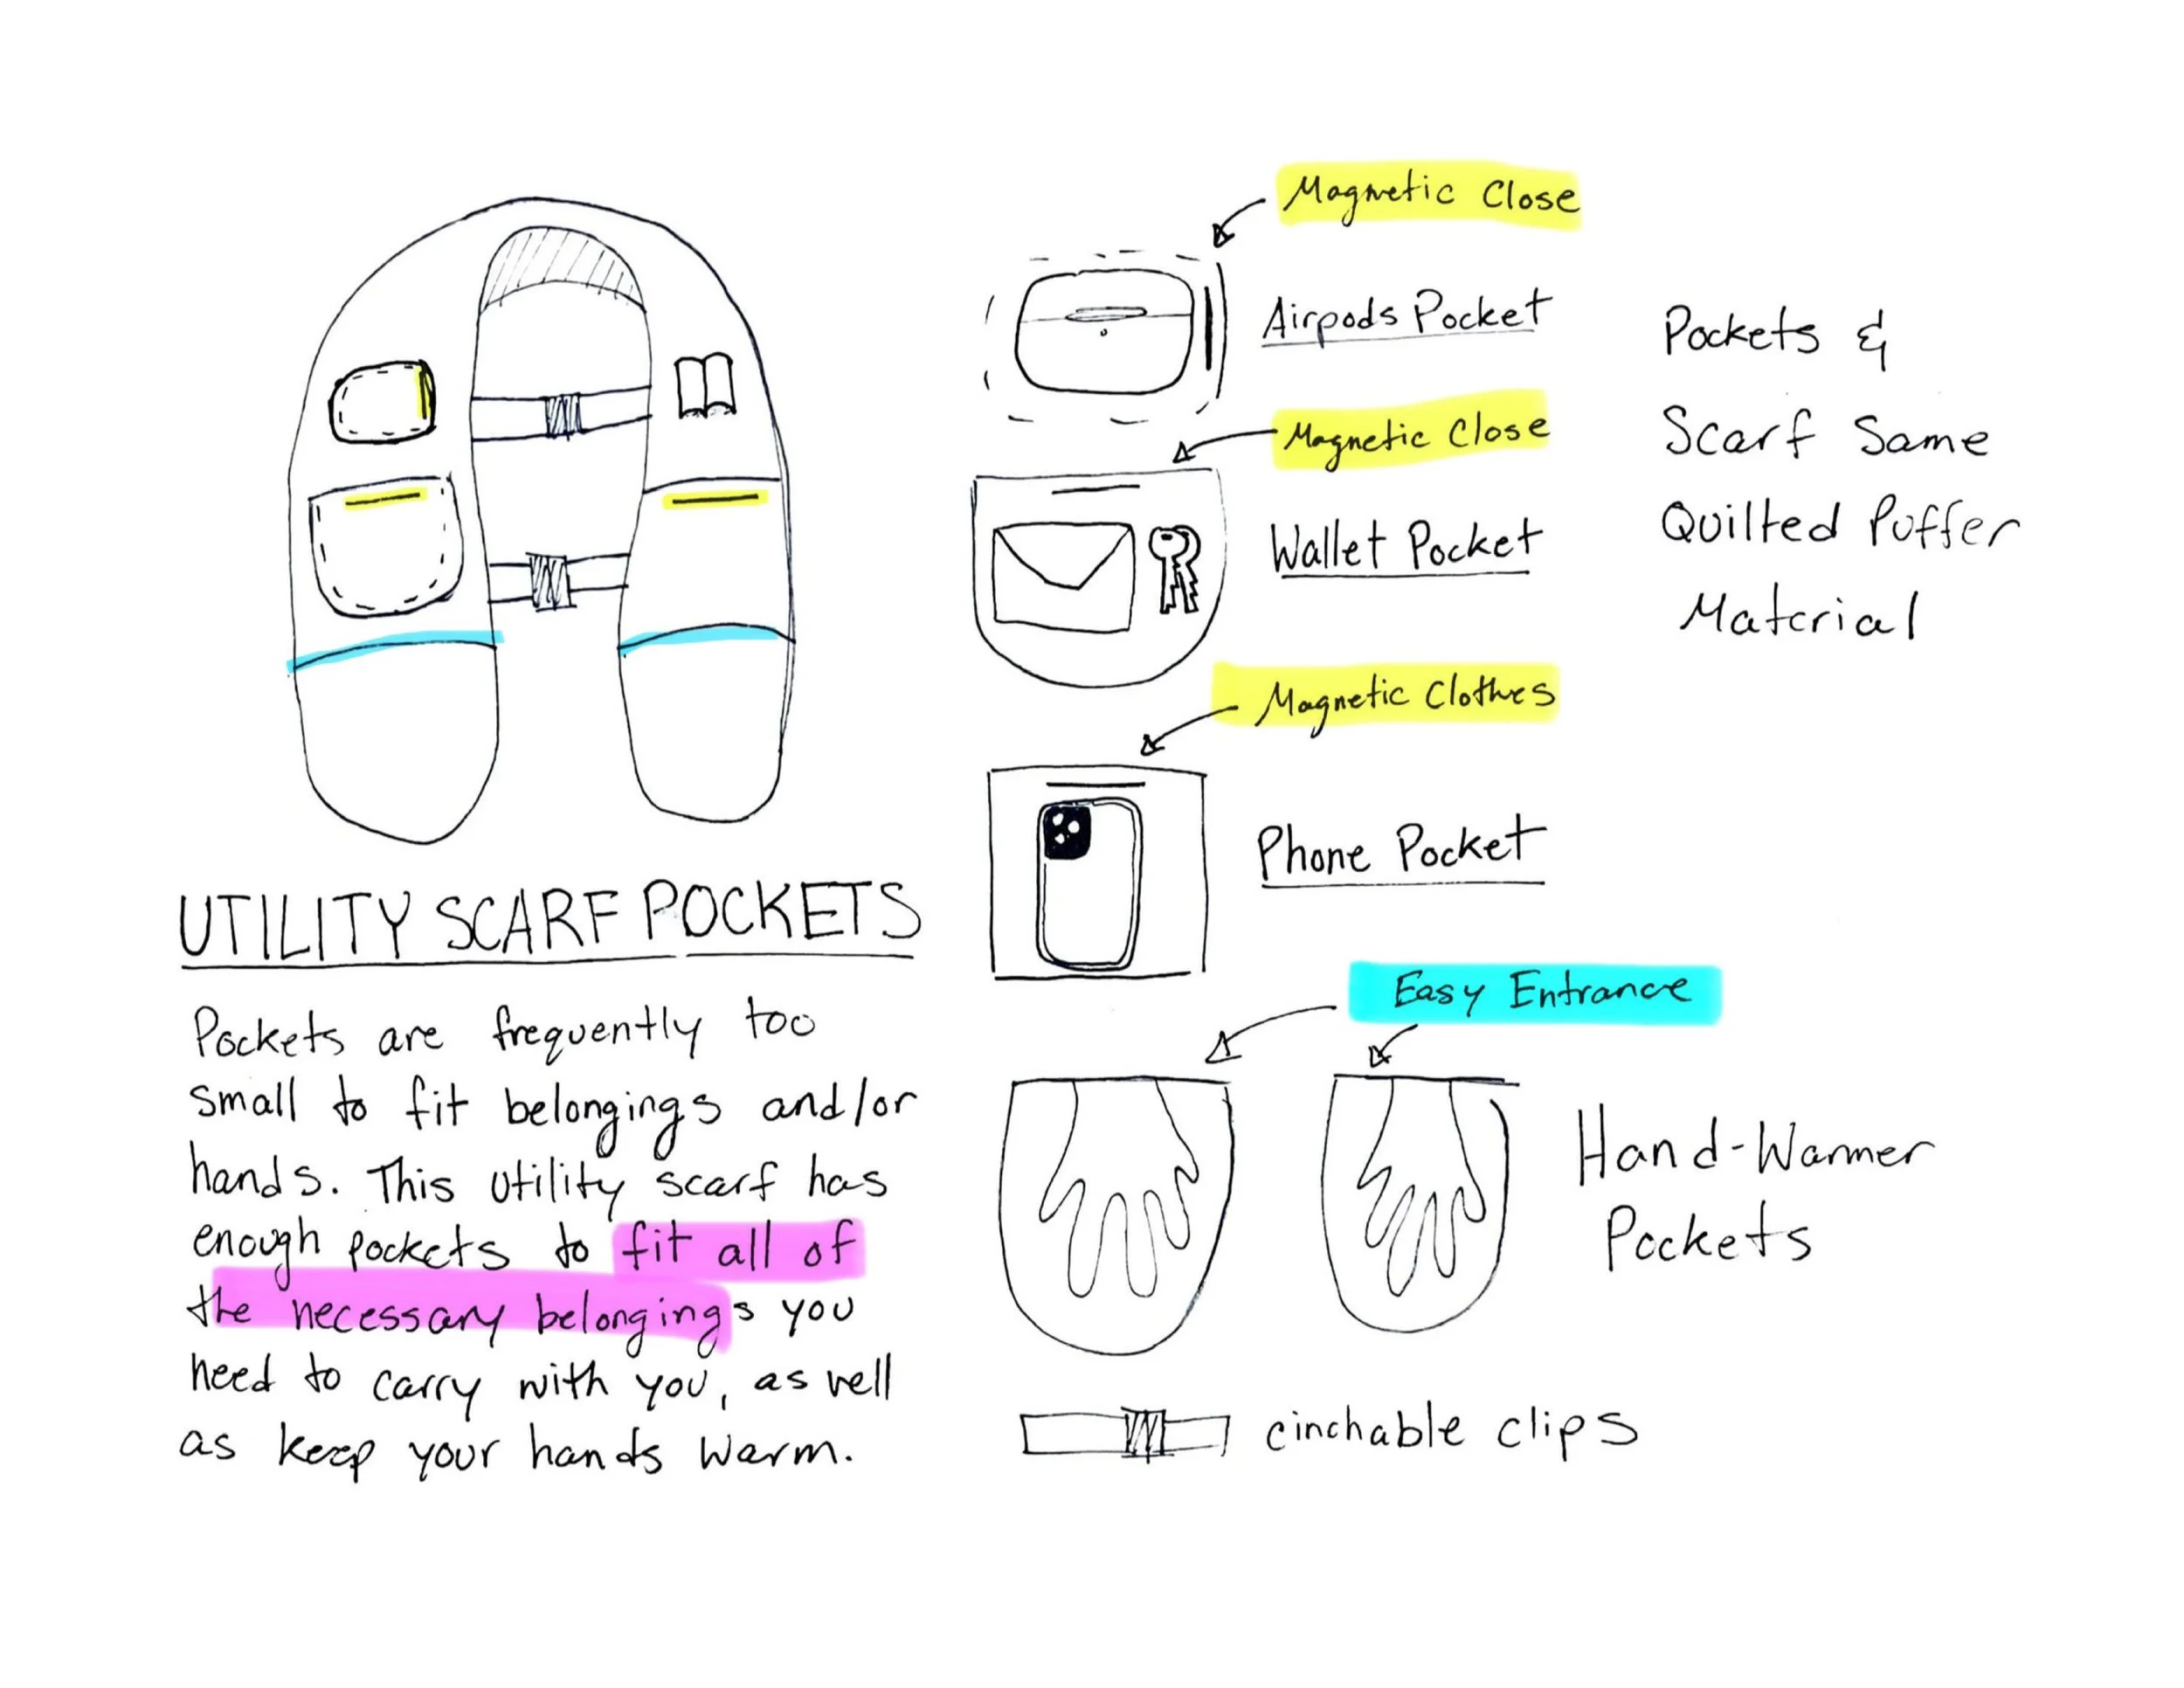 UTILITY SCARF POCKETS
Pockets are frequently too
small to fit belongings and/or
hands. This utility scarf has
enough pockets to fit all of
the necessary belongings you
need to carry with you, as well
as keep your hands warm.
Magnetic Close
Airpods Pocket
Magnetic Close
Wallet Pocket
Magnetic Clothes
Phone Pocket
Easy Entrance
Hand-Warmer
Pockets
cinchable clips
Pockets &
Scarf Same
Quilted Puffer
Material